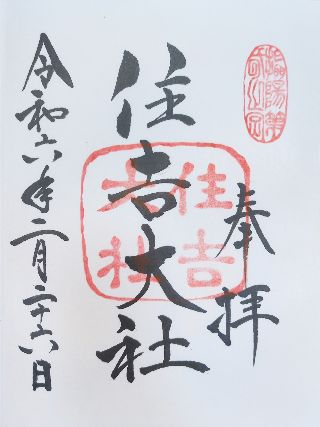 奉拝
住吉大社
令和六年二月二十六日
住吉
大社